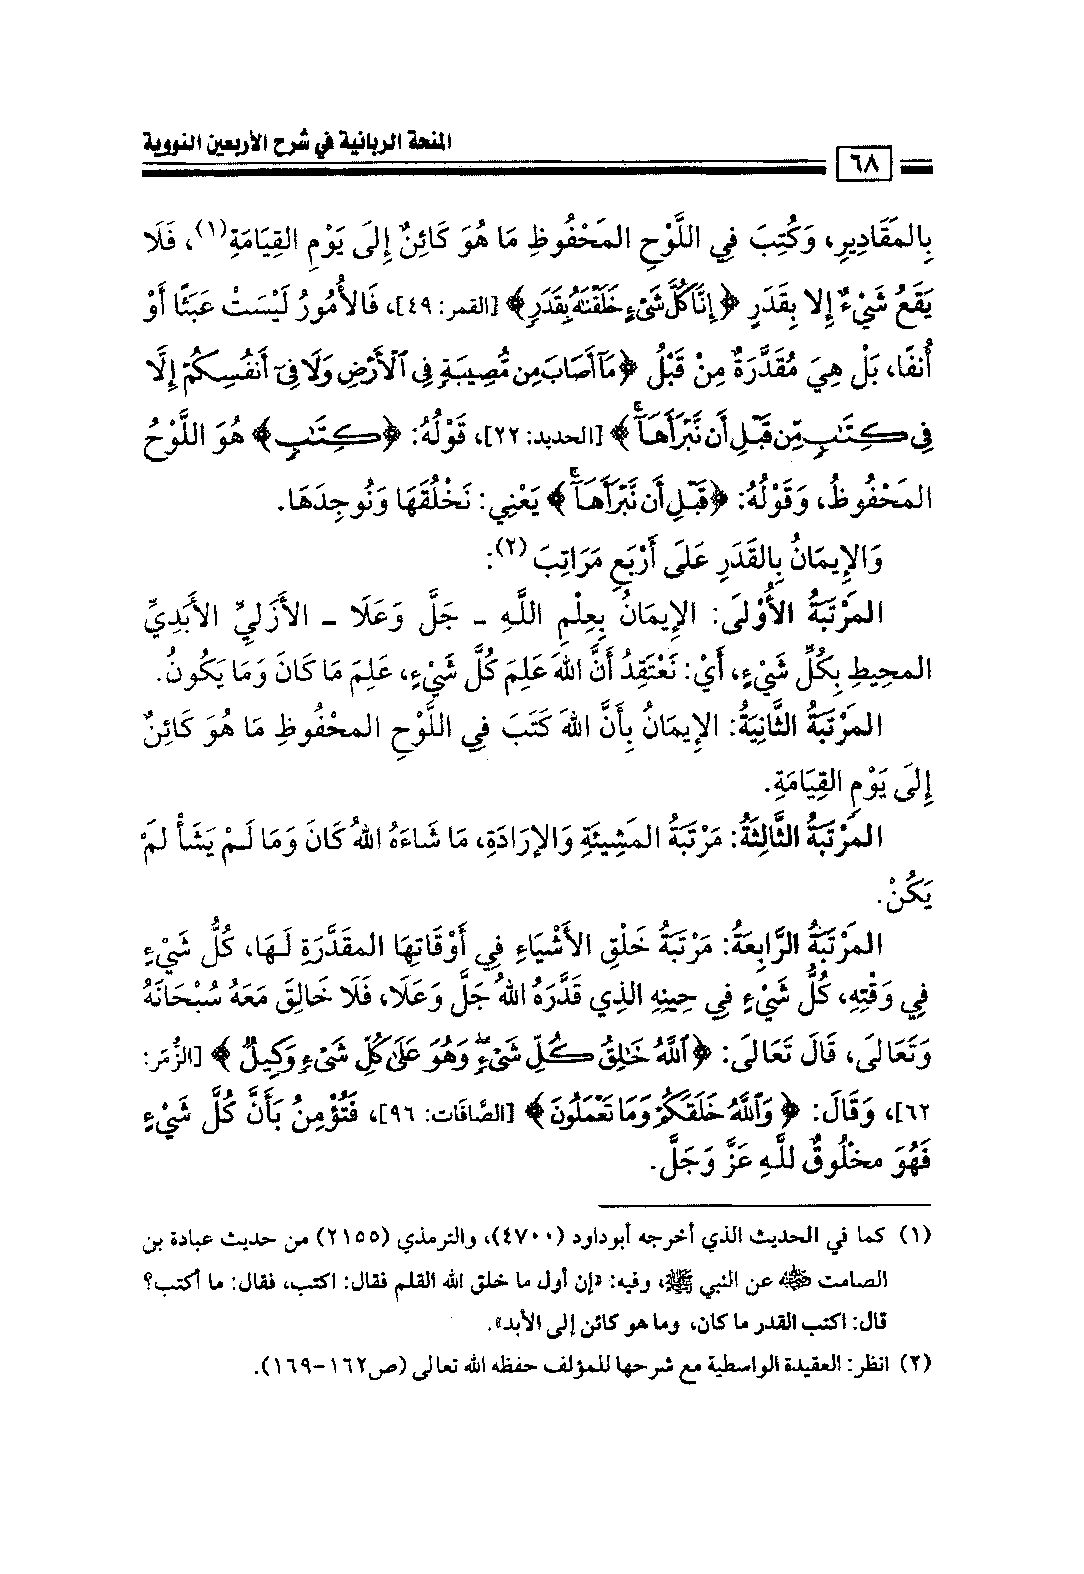 المنحة الربانية في شرح الأربعين النووية
٦٨
بِالمَقَادِيرِ، وَكُتِبَ فِي اللَّوْحِ المَحْفُوظِ مَا هُوَ كَائِنٌ إِلَى يَوْمِ القِيَامَةِ(١)، فَلَا
يَقَعُ شَيْءٌ إِلا بِقَدَرٍ ﴿إِنَّا كُلَّ شَيْءٍ خَلَقْنَٰهُ بِقَدَرٍ﴾ [القمر: ٤٩]، فَالأُمُورُ لَيْسَتْ عَبَثًا أَوْ
أُنفًا، بَلْ هِيَ مُقَدَّرَةٌ مِنْ قَبْلُ ﴿مَآ أَصَابَ مِن مُّصِيبَةٍ فِي ٱلْأَرْضِ وَلَا فِيٓ أَنفُسِكُمْ إِلَّا
فِي كِتَٰبٍ مِّن قَبْلِ أَن نَّبْرَأَهَآ ۚ﴾ [الحديد: ٢٢]، قَوْلُهُ: ﴿كِتَٰبٍ﴾ هُوَ اللَّوْحُ
المَحْفُوظُ، وَقَوْلُهُ: ﴿قَبْلِ أَن نَّبْرَأَهَآ ۚ﴾ يَعْنِي: نَخْلُقَهَا وَنُوجِدَهَا.
وَالإِيمَانُ بِالقَدَرِ عَلَى أَرْبَعِ مَرَاتِبَ (٢):
المَرْتَبَةُ الأُوْلَى: الإِيمَانُ بِعِلْمِ اللَّهِ - جَلَّ وَعَلَا - الأَزَلِيِّ الأَبَدِيِّ
المحِيطِ بِكُلِّ شَيْءٍ، أَيْ: نَعْتَقِدُ أَنَّ اللهَ عَلِمَ كُلَّ شَيْءٍ، عَلِمَ مَا كَانَ وَمَا يَكُونُ.
المَرْتَبَةُ الثَّانِيَةُ: الإِيمَانُ بِأَنَّ اللهَ كَتَبَ فِي اللَّوْحِ المحْفُوظِ مَا هُوَ كَائِنٌ
إِلَى يَوْمِ القِيَامَةِ.
المَرْتَبَةُ الثَّالِثَةُ: مَرْتَبَةُ المَشِيئَةِ وَالإِرَادَةِ، مَا شَاءَهُ اللهُ كَانَ وَمَا لَمْ يَشَأْ لَمْ
يَكُنْ.
المَرْتَبَةُ الرَّابِعَةُ: مَرْتَبَةُ خَلْقِ الأَشْيَاءِ فِي أَوْقَاتِهَا المقَدَّرَةِ لَهَا، كُلُّ شَيْءٍ
فِي وَقْتِهِ، كُلُّ شَيْءٍ فِي حِينِهِ الذِي قَدَّرَهُ اللهُ جَلَّ وَعَلَا، فَلَا خَالِقَ مَعَهُ سُبْحَانَهُ
وَتَعَالَى، قَالَ تَعَالَى: ﴿ٱللَّهُ خَٰلِقُ كُلِّ شَيْءٍ ۖ وَهُوَ عَلَىٰ كُلِّ شَيْءٍ وَكِيلٌ﴾ [الزُّمَر:
٦٢]، وَقَالَ: ﴿وَٱللَّهُ خَلَقَكُمْ وَمَا تَعْمَلُونَ﴾ [الصَّافَات: ٩٦]، فَتُؤْمِنُ بَأَنَّ كُلَّ شَيْءٍ
فَهُوَ مخْلُوقٌ للَّهِ عَزَّ وَجَلَّ.
(١) كما في الحديث الذي أخرجه أبوداود (٤٧٠٠)، والترمذي (٢١٥٥) من حديث عبادة بن
الصامت ﵁ عن النبي ﷺ، وفيه: «إن أول ما خلق الله القلم فقال: اكتب، فقال: ما أكتب؟
قال: اكتب القدر ما كان، وما هو كائن إلى الأبد».
(٢) انظر: العقيدة الواسطية مع شرحها للمؤلف حفظه الله تعالى (ص١٦٢-١٦٩).